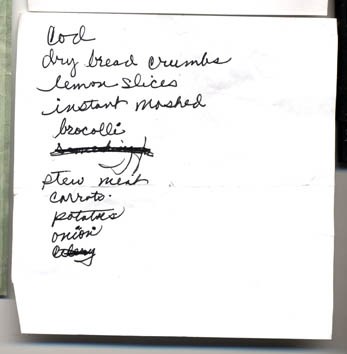 Cod
dry bread crumbs
lemon slices
instant mashed
brocolli
stew meat
carrots.
potatoes
onion